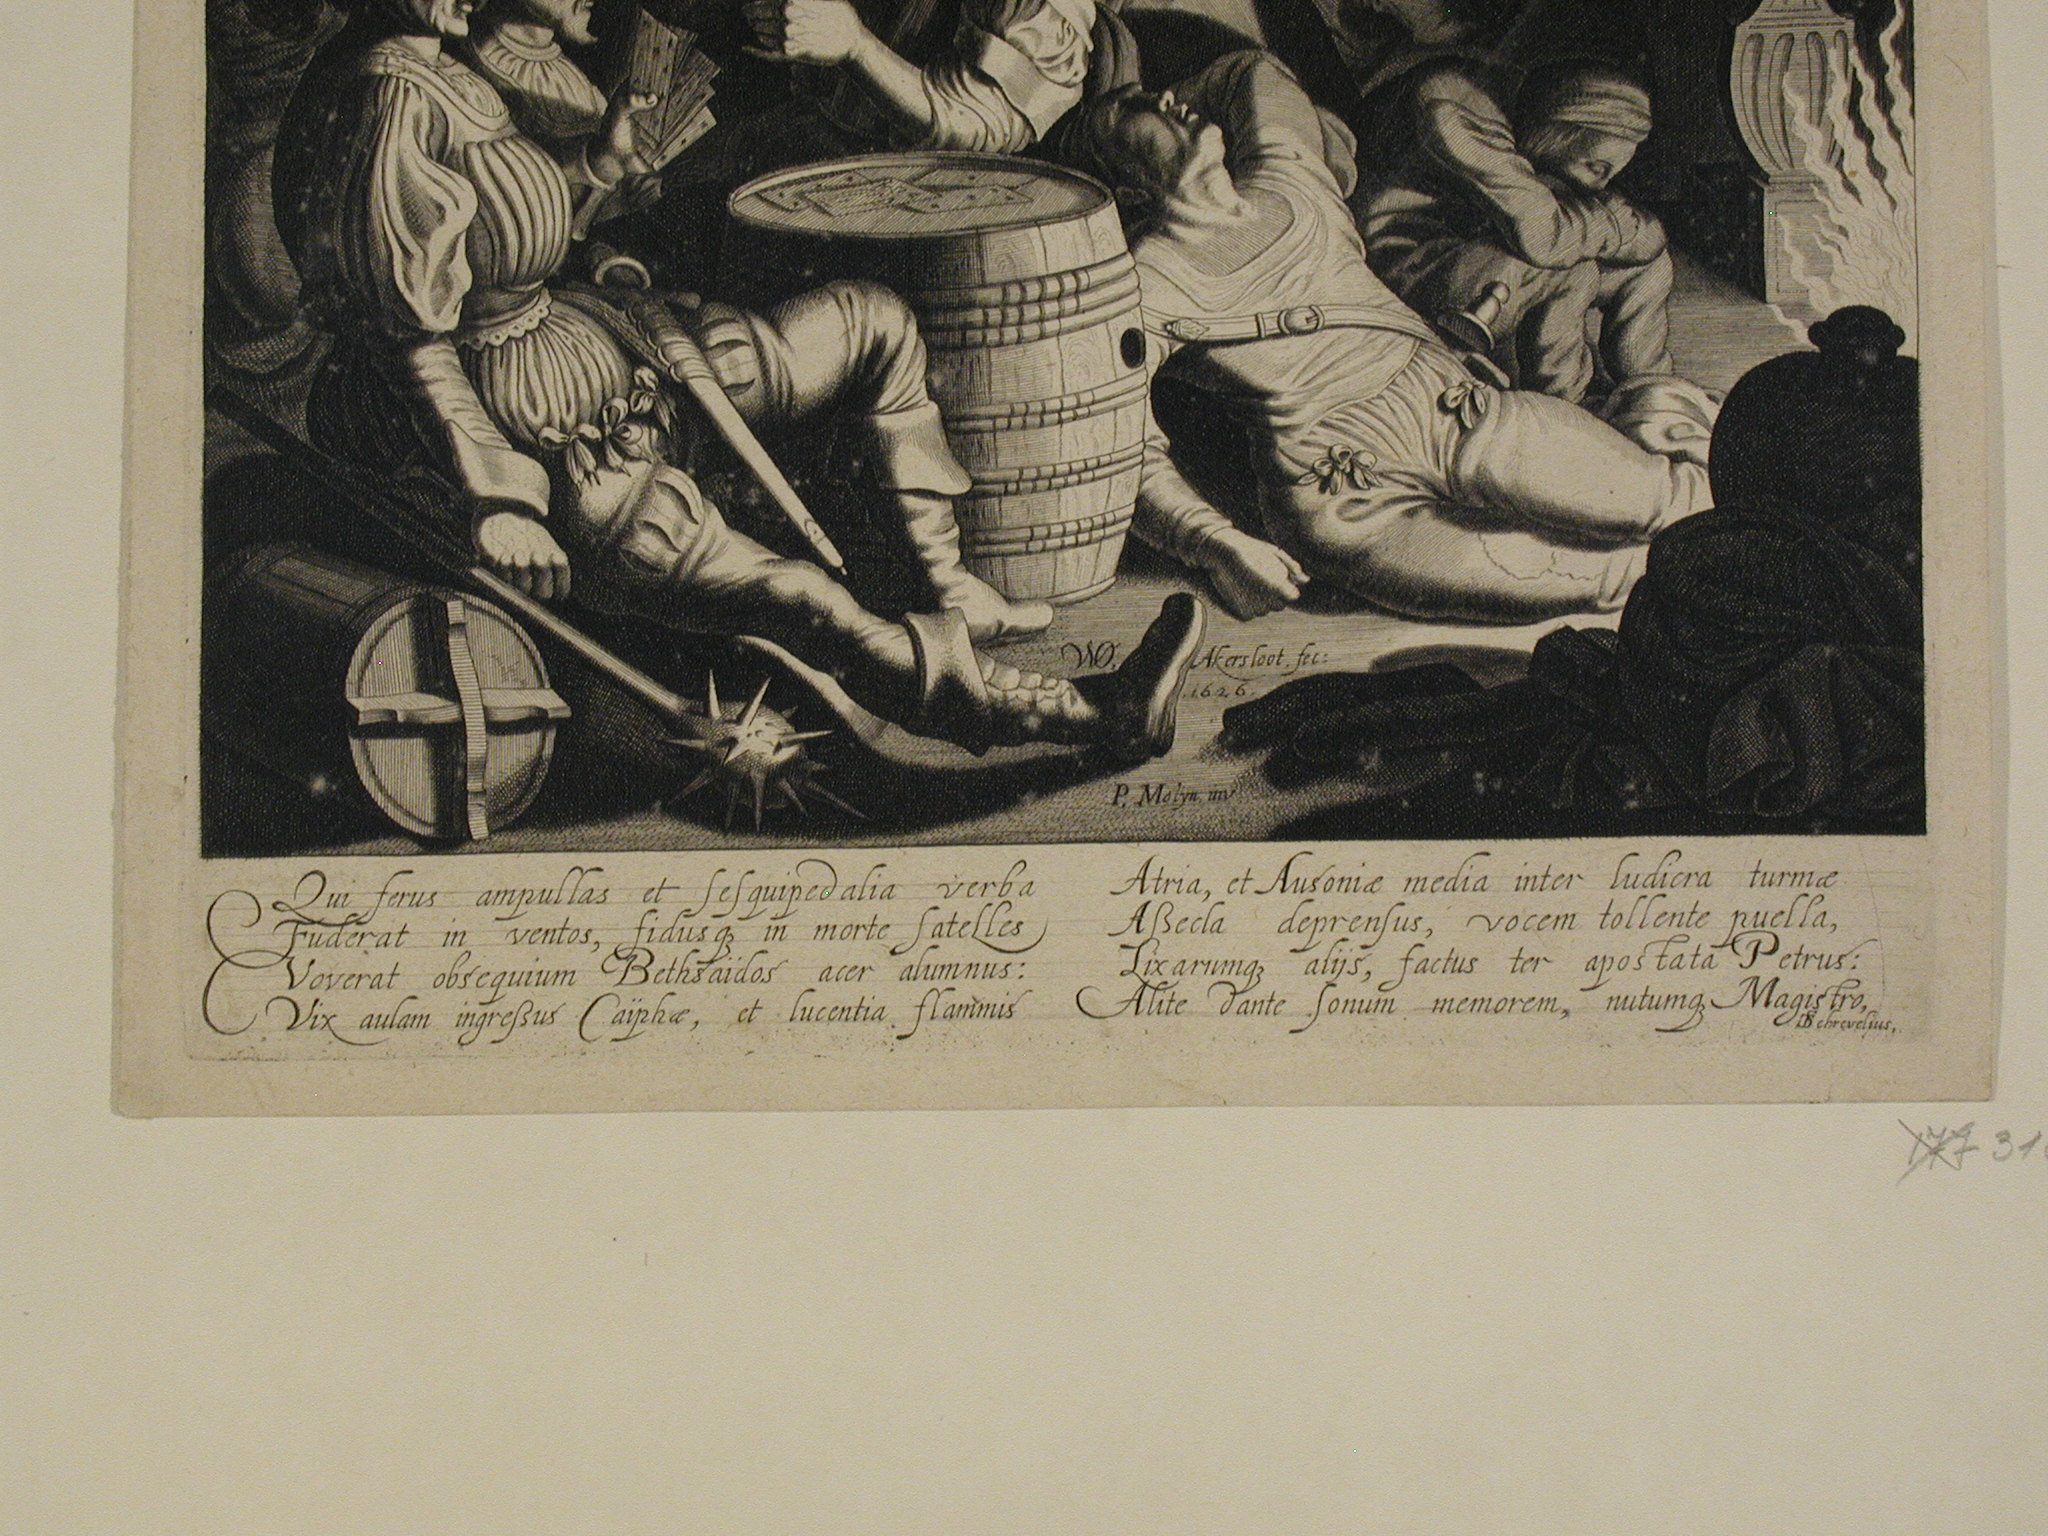 WO. Akersloot. fec:
.1626.
P. Molyn. inv
Qui ferus ampullas et sesquipedalia verba
Fuderat in ventos, fidusq; in morte satelles
Voverat obsequium Bethsaidos acer alumnus:
Vix aulam ingreßus Caiphæ, et lucentia flammis
Atria, et Ausoniæ media inter ludicra turmæ
Aßecla deprensus, vocem tollente puella,
Lixarumq; alijs, factus ter apostata Petrus:
Alite dante sonum memorem, nutumq; Magistro,
Schrevelius.